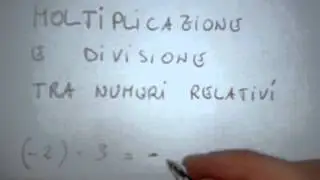 MOLTIPLICAZIONE
E DIVISIONE
TRA NUMERI RELATIVI
(-2) · 3 = -